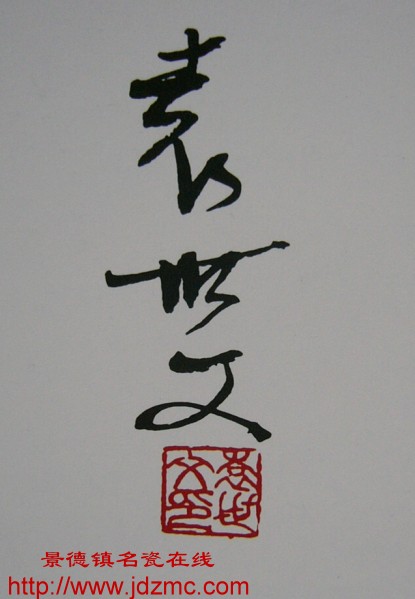 袁世文
袁世文印
景德镇名瓷在线
http://www.jdzmc.com